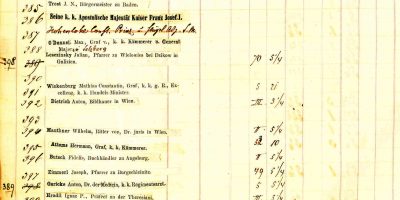 385 Trost J. N., Bürgermeister zu Baden.
386 Seine k. k. Apostolische Majestät Kaiser Franz Josef I.
387
O'Donnel Max, Graf v., k. k. Kämmerer u. General
Major Salzburg
398 Leszninsky Julian, Pfarrer zu Wielonies bei Dzikow in 70 5/4
Galizien.
390
391 Wickenburg Mathias Constantin, Graf, k. k. g. R., Ex- 5
cellenz, k. k. Handels Minister.
392 Dietrich Anton, Bildhauer in Wien. III 3/4
393
394 Mauthner Wilhelm, Ritter von, Dr. juris in Wien. II 5/4
395 Attems Herman, Graf, k. k. Kämmerer. 10
396 Butsch Fidelis, Buchhändler zu Augsburg. II 5/4
397 Zimmerl Joseph, Pfarrer zu Burgschleinitz 79 5/4
389 Guricke Anton, Dr. der Medizin, k. k. Regimentsarzt. 5 5/4
399 Hradil Ignaz Pr., Pfarrer an der Theresiani